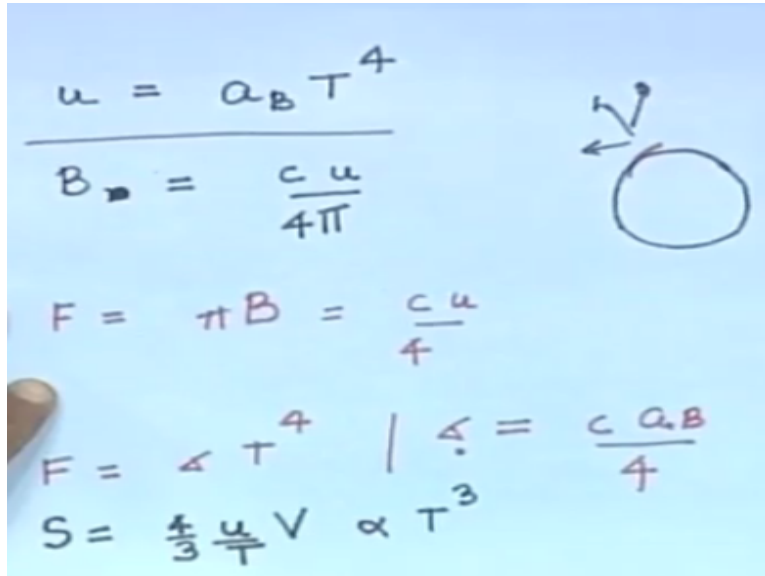 u = a_B T^4
B = c u / 4π
F = πB = c u / 4
F = σ T^4 | σ = c a_B / 4
S = 4/3 u/T V ∝ T^3